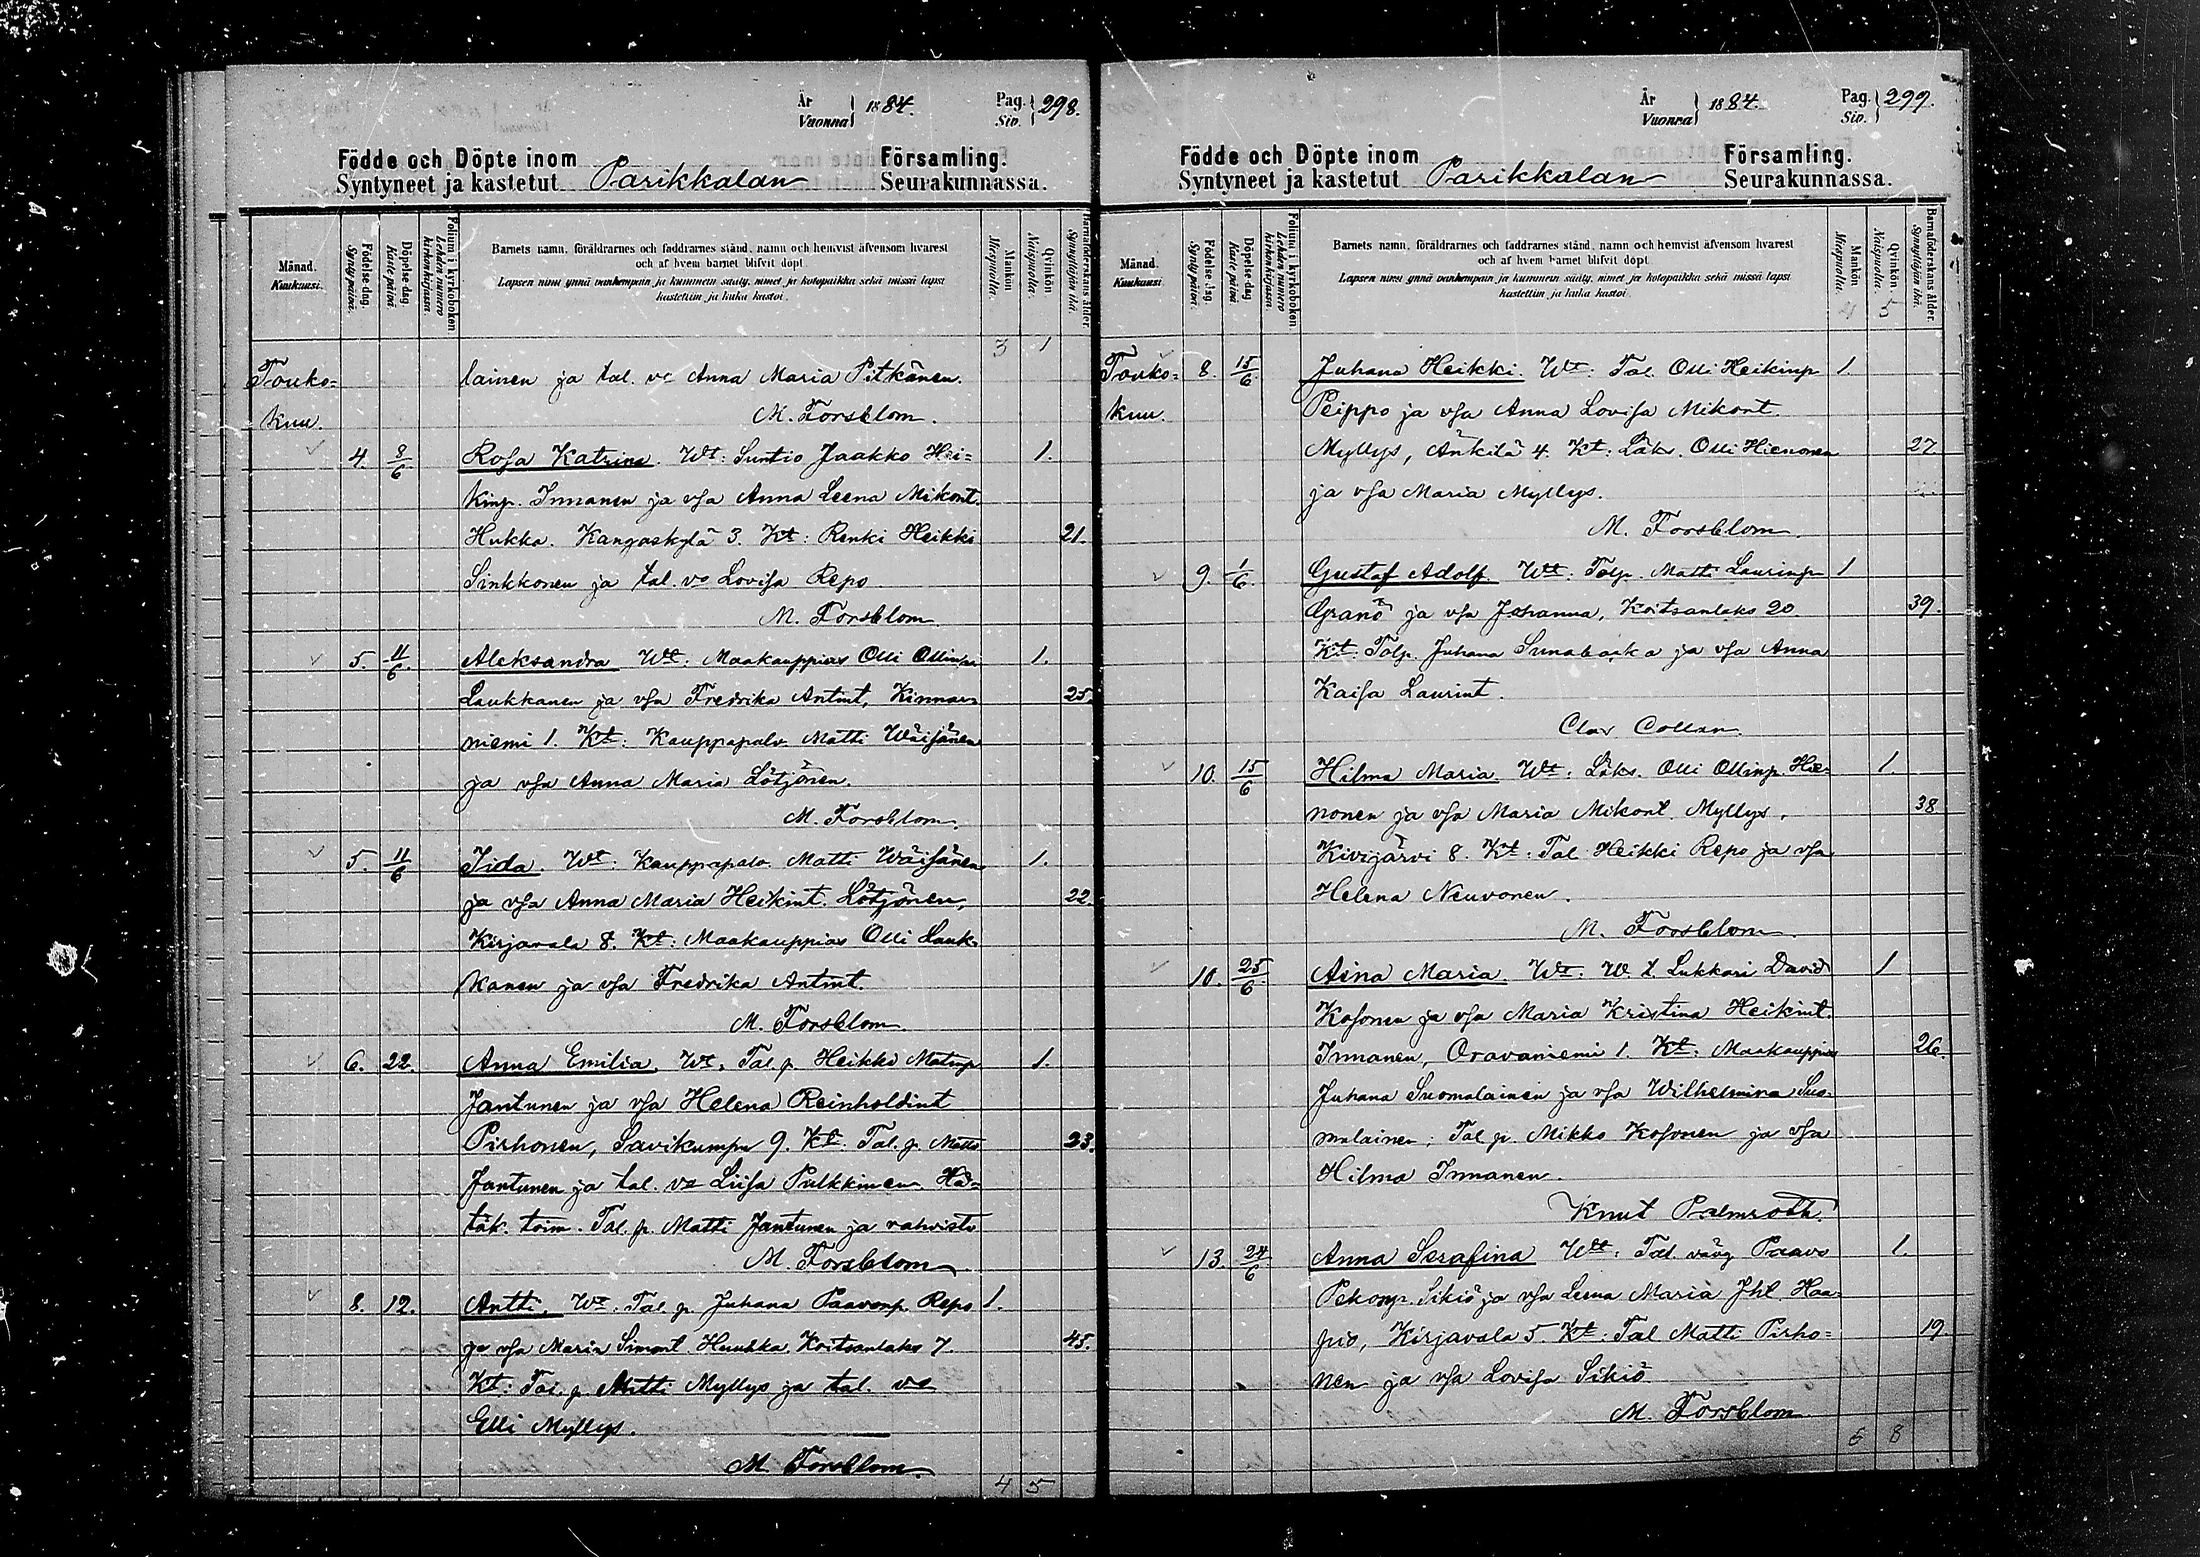 År
Vuonna 1884.
Pag.
Siv. 298.
Födde och Döpte inom Församling.
Syntyneet ja kastetut Parikkalan Seurakunnassa.
Månad.
Kuukausi.
Födelse-dag.
Syntypäivä.
Döpelse-dag
Kaste päivä.
Folium i kyrkoboken.
Lehden numero kirkonkirjassa.
Barnets namn, föräldrarnes och faddrarnes stånd, namn och hemvist äfvensom hvarest
och af hvem barnet blifvit döpt.
Lapsen nimi ynnä vanhempain ja kummein sääty, nimet ja kotopaikka sekä missä lapsi
kastettiin ja kuka kastoi.
Mankön
Miespuolia.
Qvinkön
Naispuolia.
Barnaföderskans ålder.
Synnyttäjän ikä.
3 1
Touko= lainen ja tal. vo Anna Maria Pitkänen.
kuu. M. Forsblom.
4. 8/6 Rosa Katrina. Wt: Suntio Jaakko Hei= 1.
kinp. Innanen ja vsa Anna Leena Mikont.
Hukka. Kangaskylä 3. Kt: Renki Heikki 21.
Sinkkonen ja tal. vo Lovisa Repo
M. Forsblom.
5. 11/6 Aleksandra Wt: Maakauppias Olli Ollinp. 1.
Laukkanen ja vsa Fredrika Antint, Kinnar= 25.
niemi 1. Kt: Kauppapalv. Matti Wäisänen
ja vsa Anna Maria Lötjönen.
M. Forsblom.
5. 11/6 Iida. Wt: Kauppapalv. Matti Wäisänen 1.
ja vsa Anna Maria Heikint. Lötjönen, 22.
Kirjavala 8. Kt: Maakauppias Olli Lauk=
kanen ja vsa Fredrika Antint.
M. Forsblom
6. 22. Anna Emilia. Wt: Tal. p. Heikki Matinp 1.
Jantunen ja vsa Helena Reinholdint
Pirhonen, Savikumpu 9. Kt: Tal. p. Matti 23.
Jantunen ja tal. vo Liisa Pulkkinen. Hä=
täk. toim. Tal. p. Matti Jantunen ja vahvisti
M. Forsblom
8. 12. Antti. Wt: Tal. p. Juhana Paavonp. Repo 1.
ja vsa Maria Simont. Huuhka, Koitsanlaks 7 45.
Kt: Tal. p. Matti Myllys ja tal. vo
Elli Myllys.
M. Forsblom.
4 5
År
Vuonna 1884.
Pag.
Siv. 299.
Födde och Döpte inom Församling.
Syntyneet ja kastetut Parikkalan Seurakunnassa.
Månad.
Kuukausi.
Födelse-dag.
Syntypäivä.
Döpelse-dag
Kaste päivä.
Folium i kyrkoboken.
Lehden numero kirkonkirjassa.
Barnets namn, föräldrarnes och faddrarnes stånd, namn och hemvist äfvensom hvarest
och af hvem barnet blifvit döpt.
Lapsen nimi ynnä vanhempain ja kummein sääty, nimet ja kotopaikka sekä missä lapsi
kastettiin ja kuka kastoi.
Mankön
Miespuolia.
Qvinkön
Naispuolia.
Barnaföderskans ålder.
Synnyttäjän ikä.
4 5
Touko= 8. 15/6 Juhana Heikki. Wt: Tal. Olli Heikinp 1.
kuu. Peippo ja vsa Anna Lovisa Mikont
Myllys, Änkilä 4. Kt: Läks. Olli Hienonen 27
ja vsa Maria Myllys.
M. Forsblom.
9. 1/6 Gustaf Adolf. Wt: Tolp. Matti Laurinp 1
Granö ja vsa Johanna, Koitsanlaks 20 39.
Kt: Tolp. Juhana Sunabacka ja vsa Anna
Kaisa Laurint.
Clas Collan.
10. 15/6 Hilma Maria. Wt: Läks. Olli Ollinp. Hie= 1.
nonen ja vsa Maria Mikont Myllys, 38
Kivijärvi 8. Kt: Tal. Heikki Repo ja vsa
Helena Neuvonen.
M. Forsblom.
10. 25/6 Aina Maria. Wt: W. t. Lukkari David 1
Kosonen ja vsa Maria Kristina Heikint.
Innanen, Oravaniemi 1. Kt: Maakauppias 26.
Juhana Suomalainen ja vsa Wilhelmina Suo=
malainen; Tal p. Mikko Kosonen ja vsa
Hilma Innanen.
Knut Palmroth.
13. 24/6 Anna Serafina Wt: Tal. vävy Paavo 1.
Pekonp. Sikiö ja vsa Leena Maria Jht. Haa=
pio, Kirjavala 5. Kt: Tal Matti Pirho= 19
nen ja vsa Lovisa Sikiö
M. Forsblom
6 8